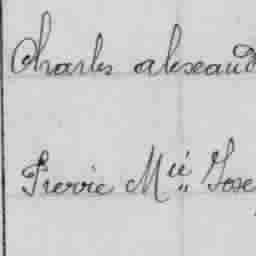 Charles alexand
Pierrie Mié Jose